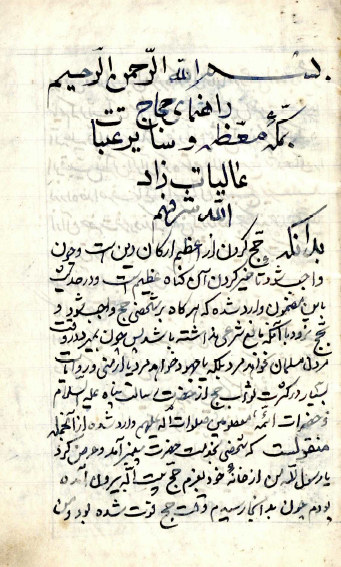 بسم الله الرحمن الرحیم
راهنمای حجاج
بمکهٔ معظمه و سایر عتبات
عالیات زاد
الله شرفهم
بدانکه حج کردن از اعظم ارکان دین است و چون
واجب شود تأخیر کردن آن گناه عظیم است و در حدیث
باین مضمون وارد شده که هر گاه بر شخصی حج واجب شود و
بحج نرود با آنکه مانع شرعی نداشته باشد پس چون بمیرد در وقت
مردن مسلمان نخواهد مرد بلکه یا جهود خواهد مرد یا ارمنی و روایات
بسیار در کثرت ثواب حج از حضرت رسالت پناه علیه السلام
و حضرات ائمه معصومین صلوات الله علیهم وارد شده از آنجمله
منقولست که شخصی بخدمت حضرت پیغمبر آمد و عرض کرد
یا رسول الله من از خانهٔ خود بعزم حج بیت الله بیرون آمده
بودم چون بد اینجا رسیدم وقت حج فوت شده بود و من